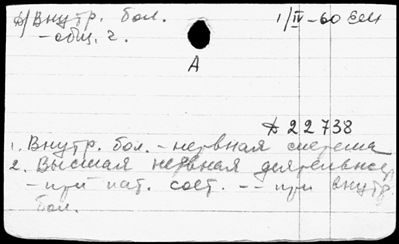 Д/Внутр. бол. 1/IV-60 Сем
- общ. ч.
А
Д 22738
1. Внутр. бол. - нервная система
2. Высшая нервная деятельнос
- при пат. сост. -- при внутр.
бол.